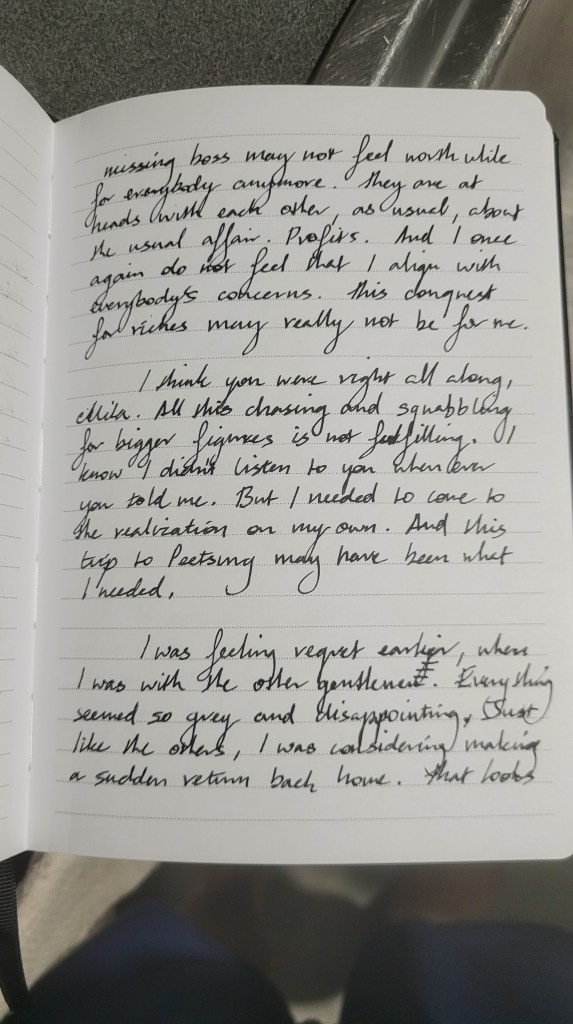 missing boss may not feel worth while
for everybody anymore. They are at
heads with each other, as usual, about
the usual affair. Profits. And I once
again do not feel that I align with
everybody's concerns. This conquest
for riches may really not be for me.
I think you were right all along,
Mila. All this chasing and squabblong
for bigger figures is not fulfilling. I
know I didn't listen to you whenever
you told me. But I needed to come to
the realization on my own. And this
trip to Peetsung may have been what
I needed.
I was feeling regret earlier, when
I was with the other gentlemen. Everything
seemed so grey and disappointing. Just
like the others, I was considering making
a sudden return back home. That looks